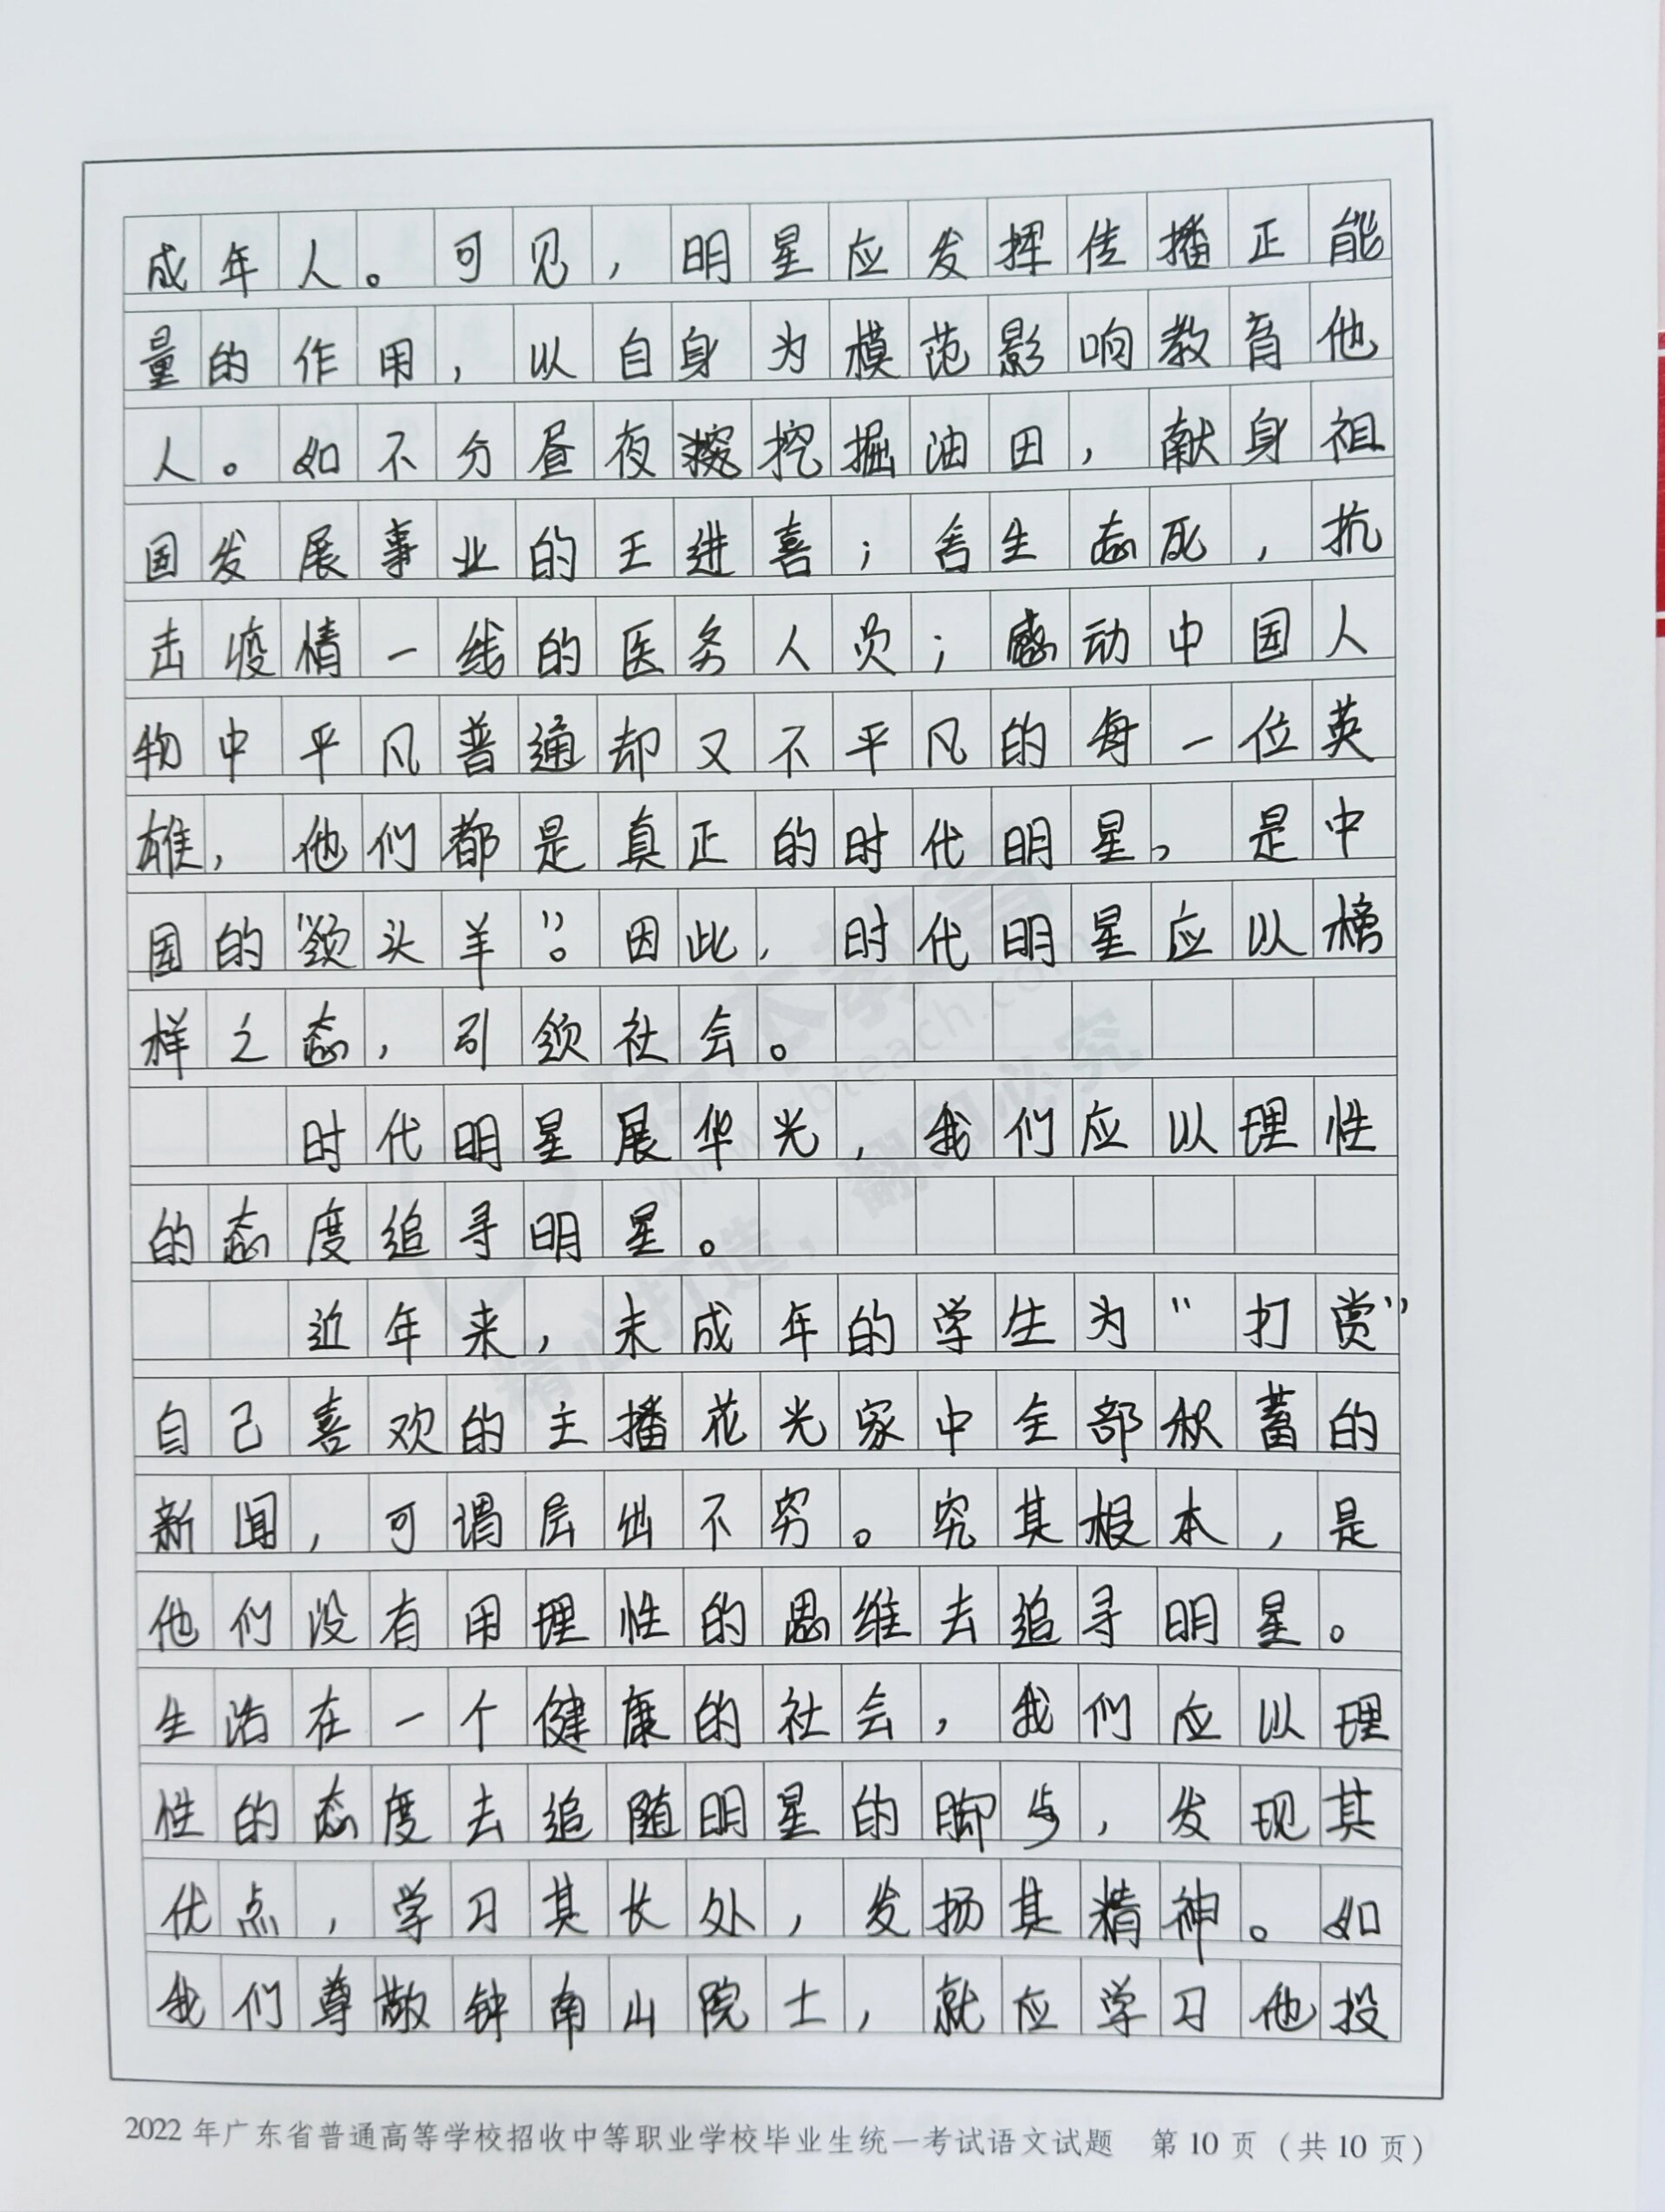 成年人。可见，明星应发挥传播正能
量的作用，以自身为模范影响教育他
人。如不分昼夜挖掘油田，献身祖
国发展事业的王进喜；舍生忘死，抗
击疫情一线的医务人员；感动中国人
物中平凡普通却又不平凡的每一位英
雄，他们都是真正的时代明星，是中
国的“领头羊”。因此，时代明星应以榜
样之态，引领社会。
时代明星展华光，我们应以理性
的态度追寻明星。
近年来，未成年的学生为“打赏”
自己喜欢的主播花光家中全部积蓄的
新闻，可谓层出不穷。究其根本，是
他们没有用理性的思维去追寻明星。
生活在一个健康的社会，我们应以理
性的态度去追随明星的脚步，发现其
优点，学习其长处，发扬其精神。如
我们尊敬钟南山院士，就应学习他投
2022年广东省普通高等学校招收中等职业学校毕业生统一考试语文试题 第10页（共10页）